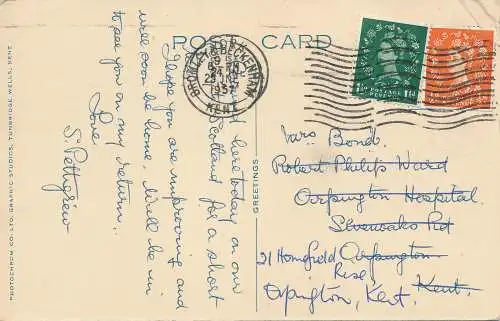 POST CARD
BROMLEY & BECKENHAM
KENT
1½D POSTAGE 1½D
here today on our
Scotland for a short
I hope you are improving and
will soon be home, will be in
to see you on my return.
Love
S. Pettigrew
Mrs Bond.
Robert Philip Ward
Orpington Hospital
Sevenoaks Rd
Orpington
Kent.
21 Homefield Rise,
Orpington, Kent.
GREETINGS
PHOTOCHROM CO. LTD. GRAPHIC STUDIOS, TUNBRIDGE WELLS, KENT.